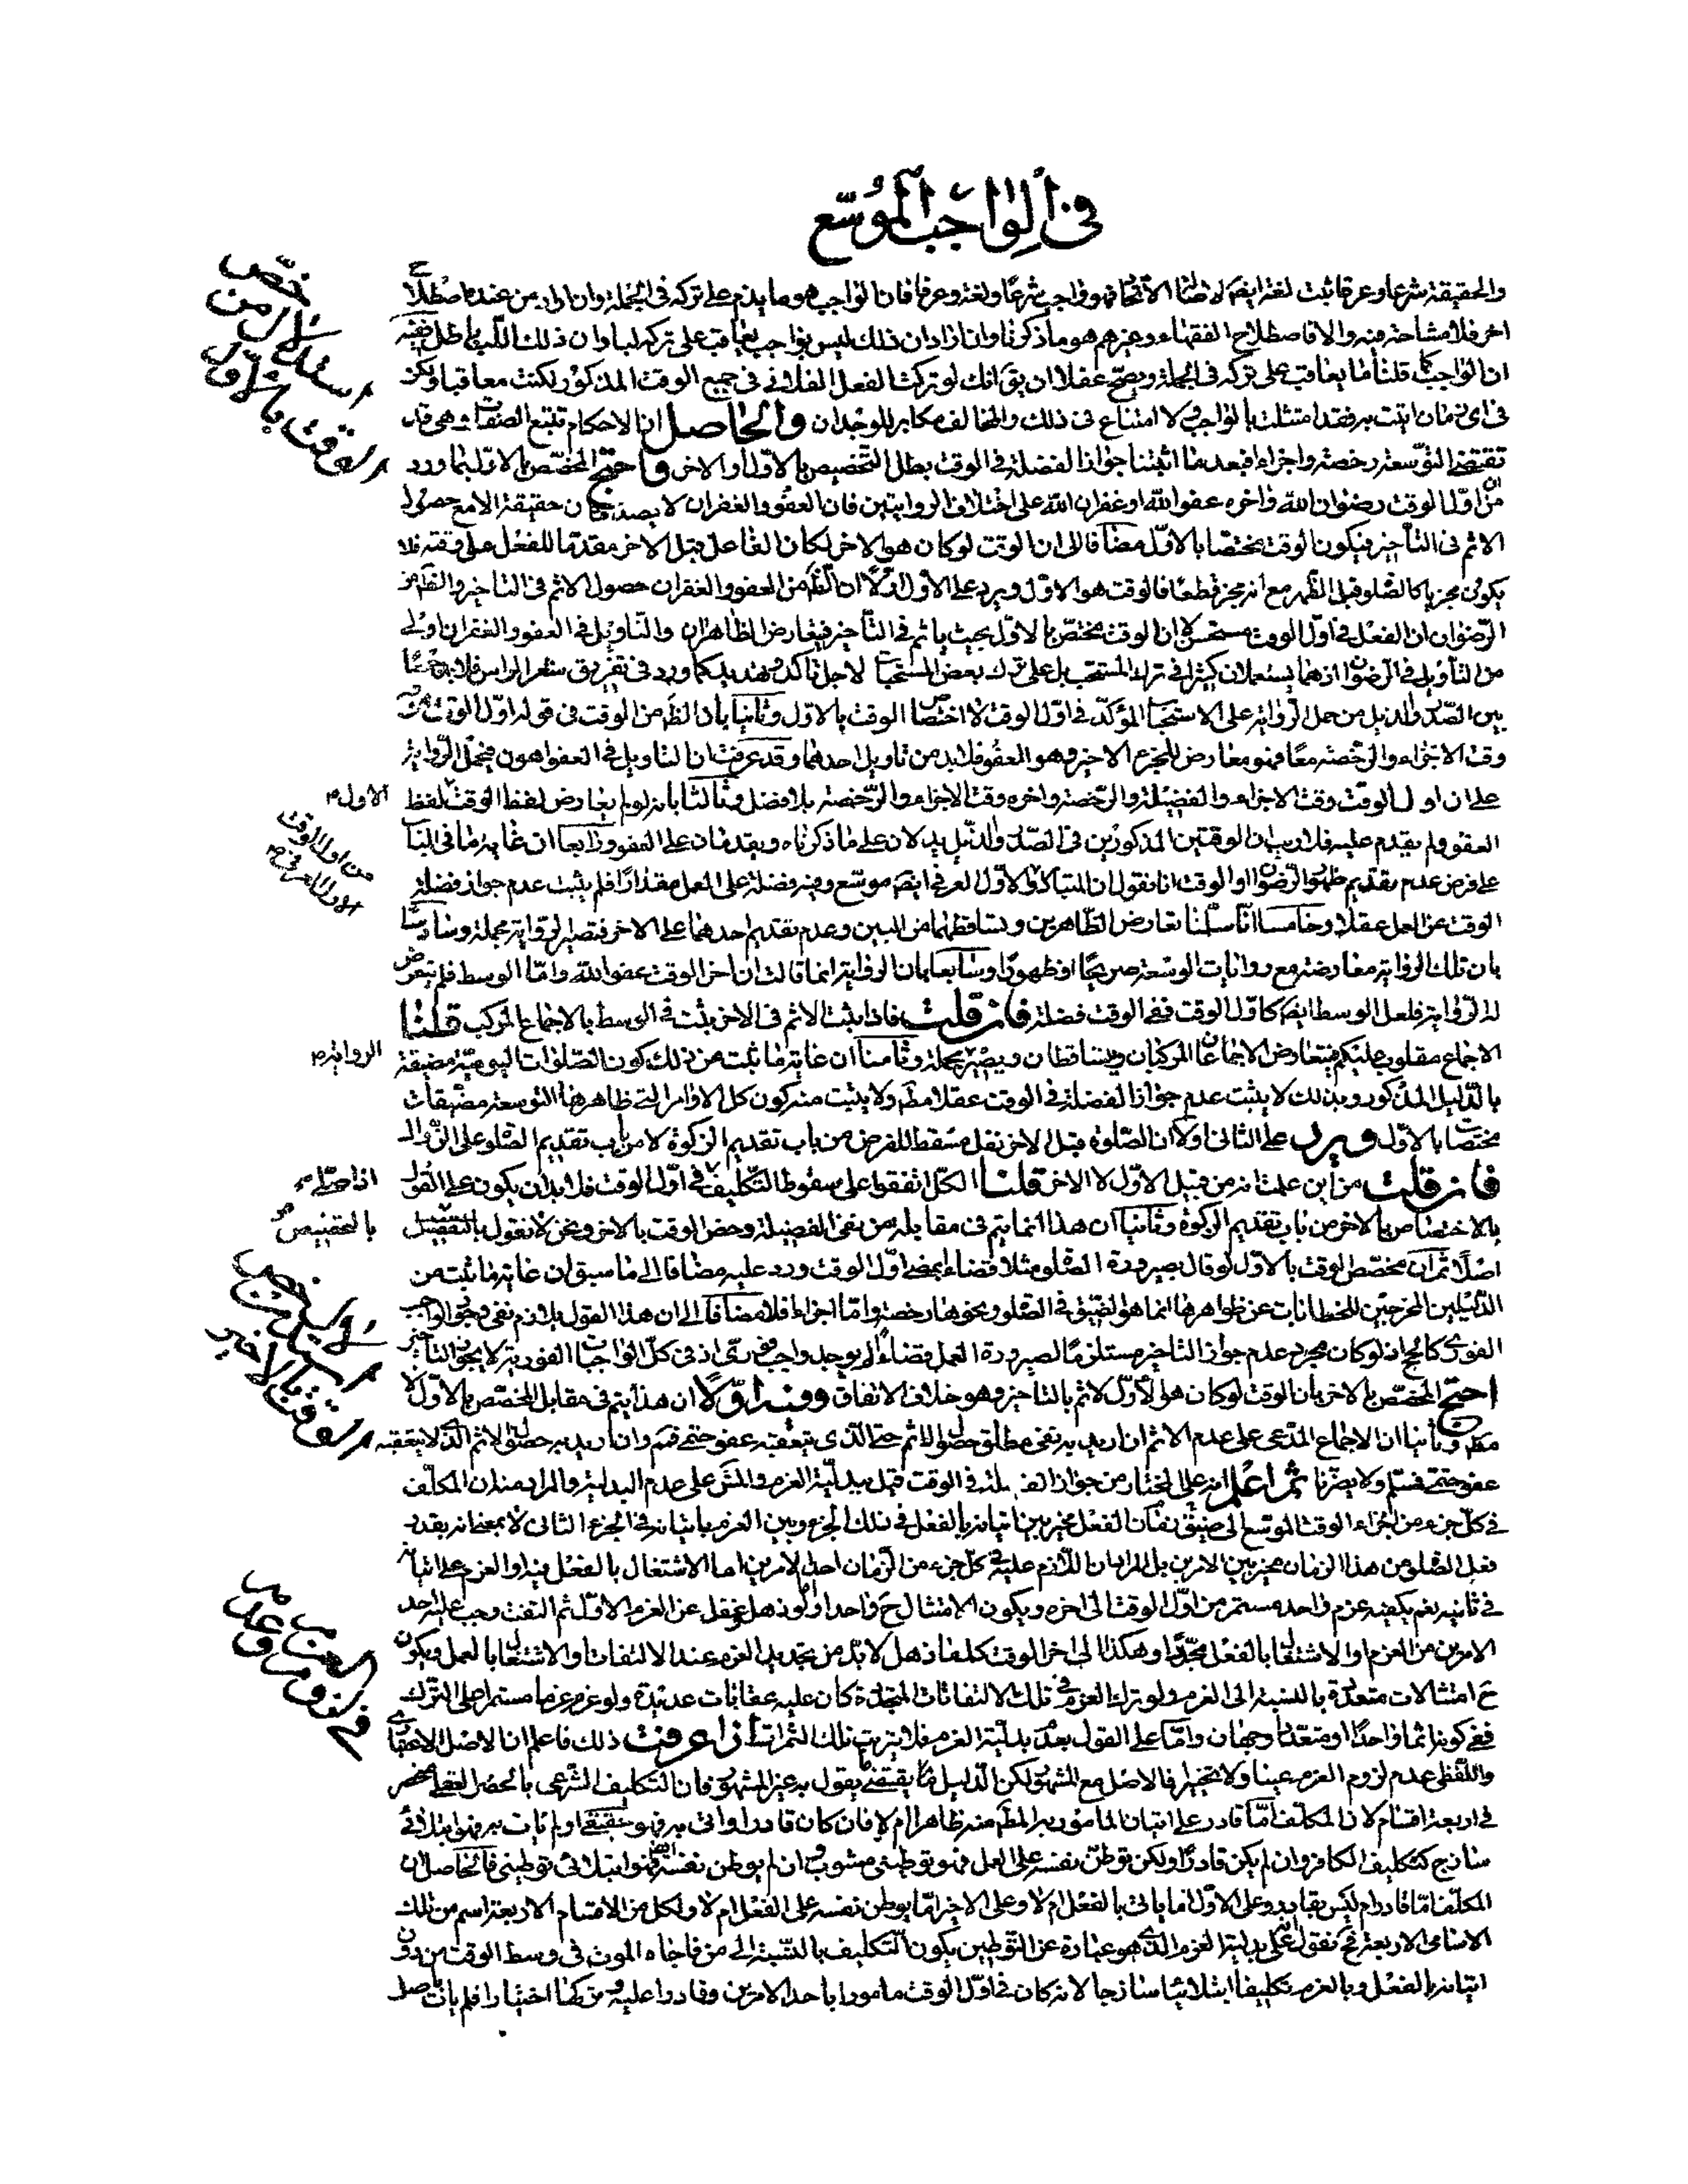 في الواجب الموسّع
والحقيقة شرعا وعرفا ثبت لغة ايضا فهو واجب شرعًا ولغة وعرفا فان الواجب هو ما يذم على تركه في الجملة وان اراد من عنده اصطلاحا
اخر فلا مشاحة فيه والا فاصطلاح الفقهاء وغيرهم هو ما ذكرنا وان اراد ان ذلك ليس بواجب يعاقب على تركه وان ذلك باطل ففيه
ان الواجب قلنا ما يعاقب على تركه في الجملة ويصحّ عقلا ان يقال انك لو تركت الفعل الفلاني في جميع الوقت المذكور لكنت معاقبا ولكن
في اى زمان اتيت به فقد امتثلت بالواجب لا امتناع في ذلك والمخالف مكابر للوجدان والحاصل ان الاحكام تتبع الصفات وهى قد
تقتضى التوسعة رخصة واجزاء فبعد ما اثبتنا جواز الفضلة في الوقت بطل التخصيص بالاوّل او الاخر واحتج المخصّص بالاوّل بما ورد
من ان اوّل الوقت رضوان الله واخره عفو الله او غفران الله على اختلاف الروايتين فان العفو والغفران لا يصدقان حقيقة الا مع حصول
الاثم في التأخير فيكون الوقت مختصا بالاوّل مضافا الى ان الوقت لو كان هو الاخر لكان الفاعل قبل الاخر مقدّما للفعل على وقته فلا
يكون مجزيا كالصلوة قبل الظهر مع انه مجز قطعًا فالوقت هو الاوّل ويرد على الاوّل اوّلاً ان الظ من العفو والغفران حصول الاثم في التأخير والظ من
الرّضوان ان الفعل في اوّل الوقت مستحسن لا ان الوقت مختصّ بالاوّل بحيث ياثم في التأخير فيتعارض الظاهران والتاويل في العفو والغفران اولى
من التأويل في الرضوان اذ هما يستعملان كثيرا في ترك المستحب بل على ترك بعض المستحبات لاجل تاكده تهديد كما ورد في تفريق شعر الراس فلا بد جمعًا
بين الصّدر والذيل من حمل الرواية على الاستحباب المؤكّد في اوّل الوقت لا اختصاص الوقت بالاوّل وثانيا بان الظ من الوقت في قوله اوّل الوقت هو
وقت الاجزاء والرخصة معًا فهو معارض للجزء الاخير وهو العفو فلا بد من تاويل احدهما وقد عرفت ان التاويل في العفو اهون فيحمل الرّواية
على ان اول الوقت وقت الاجزاء والفضيلة والرّخصة واخره وقت الاجزاء والرّخصة بلا فضل وثالثا بانه لو لم يعارض لفظ الوقت لفظ
العفو ولم يقدم عليه فلا ريب ان الوقتين المذكورين في الصّدر والذّيل يدلان على ما ذكرناه ويقدمان على العفو ورابعا ان غاية ما في الباب
على فرض عدم تقديم ظهور الرّضوان او الوقت انا نقول ان المتبادر الاوّل العرفى ايضا موسّع وفيه فضلة على العمل مقدارًا فلم يثبت عدم جواز فضلة
الوقت عن العمل عقلا وخامسا انّا سلّمنا تعارض الظّاهرين وتساقطهما من البين وعدم تقديم احدهما على الاخر فتصير الرواية مجملة وسادسا
بان تلك الرواية معارضة مع روايات الوسعة صريحًا او ظهورًا وسابعا بان الرواية انما قالت ان اخر الوقت عفو الله وامّا الوسط فلم يتعرض
له الرّواية فلعل الوسط ايضا كاوّل الوقت ففي الوقت فضلة فان قلت فاذا ثبت الاثم في الاخر يثبت في الوسط بالاجماع المركب قلنا
الاجماع مقلوب عليكم فيتعارض الاجماعان المركبان ويتساقطان ويصير مجملة وثامنا ان غاية ما ثبت من ذلك كون الصّلوات اليوميّة مضيقة
بالدّليل المذكور وبذلك لا يثبت عدم جواز الفضلة في الوقت عقلا مط ولا يثبت منه كون كل الاوامر التى ظاهرها التوسعة مضيقات
مختصّا بالاوّل ويرد على الثانى اوّلا ان الصّلوة قبل الاخر نفل مسقط للفرض من باب تقديم الزكوة لا من باب تقديم الصّلوة على الزّوال
فان قلت من اين علمت انه من قبيل الاوّل لا الاخر قلنا الكلّ اتفقوا على سقوط التّكليف في اوّل الوقت فلا بد ان يكون على القول
بالاختصاص بالاخر من باب تقديم الزكوة وثانيا ان هذا انما يتم في مقابلة من نفى الفضيلة وخصّ الوقت بالاخر ونحن لا نقول بالتخصيص
اصلاً ثم ان مخصّص الوقت بالاوّل لو قال بصيرورة الصّلوة مثلا قضاء بمضى اوّل الوقت ورد عليه مضافا الى ما سبق ان غاية ما ثبت من
الدّليلين المخرجين للخطابات عن ظواهرها انما هو الضّيق في الصّلوة ونحوها رخصة وامّا اجزاء فلا مضافا الى ان هذا القول يلازم نفى وجود الواجب
الفورى كالحج اذ لو كان مجرد عدم جواز التأخير مستلزمًا لصيرورة العمل قضاءً لم يوجد واجب فورىّ اذ في كلّ الواجبات الفورية لا يجوز التأخير
احتج المخصّص بالاخر بان الوقت لو كان هو الأوّل لاثم بالتأخير وهو خلاف الاتفاق وفيه اوّلاً ان هذا يتم في مقابل المخصّص بالاوّل لا
مط وثانيا ان الاجماع المدّعى على عدم الاثم ان اريد به نفى مطلق حصول الاثم حتى الذى يتعقبه عفو حتمى فمم وان اريد به حصول الاثم الذى لا يتعقبه
عفو حتمى فمسلم ولا يضرّنا ثم اعلم انه على المختار من جواز الفضلة في الوقت قيل ببدليّة العزم والمش على عدم البدلية والمراد منه ان المكلّف
في كلّ جزء من اجزاء الوقت الموسّع الى ضيق زمان الفعل مخير بين اتيانه بالفعل في ذلك الجزء وبين العزم باتيانه في الجزء الثانى لا بمعنى انه بقدر
فعل الصّلوة من هذا الزمان مخير بين الامرين بل المراد ان اللّازم عليه في كلّ جزء من الزمان احد الامرين اما الاشتغال بالفعل فيه او العزم على اتيانه
في ثانيه نعم يكفيه عزم واحد مستمر من اوّل الوقت الى اخره ويكون الامتثال ح واحدا ولو ذهل او غفل عن العزم الاوّل ثم التفت وجب عليه احد
الامرين من العزم او الاشتغال بالفعل مجدّدا وهكذا الى اخر الوقت كلما ذهل لا بدّ من تجديد العزم عند الالتفات او الاشتغال بالعمل ويكون
ح امتثالات متعدّدة بالنسبة الى العزم ولو ترك العزم في تلك الالتفاتات المتجددة كان عليه عقابات عديدة ولو عزم عزما مستمرا على الترك
ففي كونه اثما واحدًا او متعدّدا وجهان وامّا على القول بعدم بدليّة العزم فلا يترتب تلك الثمرات اذا عرفت ذلك فاعلم ان الاصل الاعتبارى
واللّفظى عدم لزوم العزم عينا ولا تخييرا فالاصل مع المشهور لكن الدّليل ما يقتضى يقول به غير المشهور فان التكليف الشّرعى بالحصر العقلى منحصر
في اربعة اقسام لان المكلّف امّا قادر على اتيان المامور به المط منه ظاهرا ام لا فان كان قادرا واتى به فهو حقيقى او لم يات به فهو ابتلائى
ساذج كتكليف الكافر وان لم يكن قادرًا ولكن توطّن نفسه على العمل فهو توطينى مشوب وان لم يوطن نفسه فهو ابتلائى توطينى فالحاصل ان
المكلّف امّا قادر ام ليس بقادر وعلى الاوّل اما ياتى بالفعل ام لا وعلى الاخير امّا يوطن نفسه على الفعل ام لا ولكل من الاقسام الاربعة اسم من تلك
الاسامى الاربعة فح نقول على بدلية العزم الذى هو عبارة عن التّوطين يكون التّكليف بالنّسبة الى من فاجاه الموت في وسط الوقت من دون
اتيانه بالفعل وبالعزم تكليفا ابتلائيا ساذجا لانه كان في اوّل الوقت مامورا باحد الامرين وقادرا عليه وتركهما اختيارا فلم يات
الاول م
من اول الوقت
الاول العرفى م
الرواية م
اذا صلّى م
بالتخصيص م